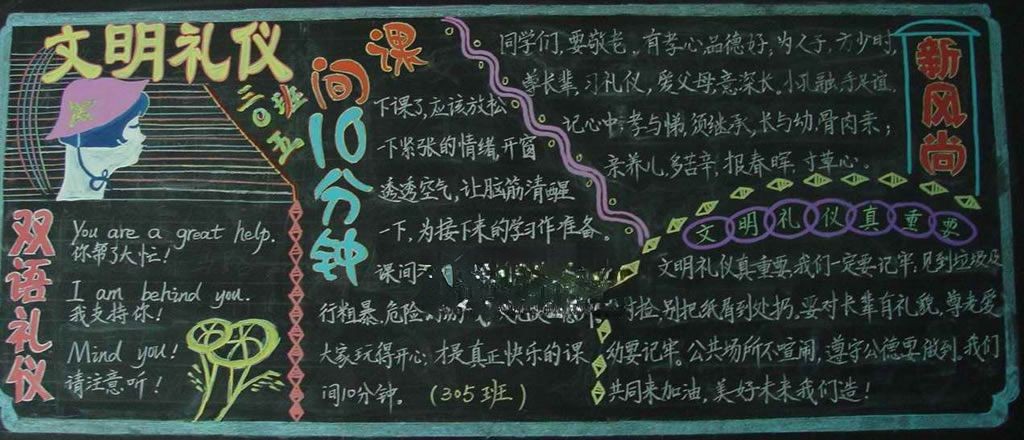 文明礼仪
三〇五班
双语礼仪
You are a great help.
你帮了大忙!
I am behind you.
我支持你!
Mind you!
请注意听!
课间10分钟
下课了,应该放松
一下紧张的情绪,开窗
透透空气,让脑筋清醒
一下,为接下来的学习作准备。
课间
行粗暴、危险
大家玩得开心;才是真正快乐的课
间10分钟。(305班)
新风尚
同学们,要敬老,有孝心,品德好,为人子,方少时,
尊长辈,习礼仪,爱父母,意深长。小孔融,手足谊,
记心中;孝与悌,须继承,长与幼,骨肉亲;
亲养儿,多苦辛,报春晖,寸草心。
文明礼仪真重要
文明礼仪真重要,我们一定要记牢,见到垃圾及
时捡,别把纸屑到处扔,要对长辈有礼貌,尊老爱
幼要记牢。公共场所不喧闹,遵守公德要做到。我们
共同来加油,美好未来我们造!